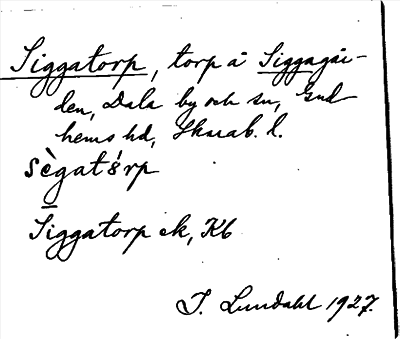 Siggatorp, torp å Siggagår-
den, Dala by och sn, Gud
hems hd, Skarab. l.
sègatórp
Siggatorp ek, Kb
I. Lundahl 1927.